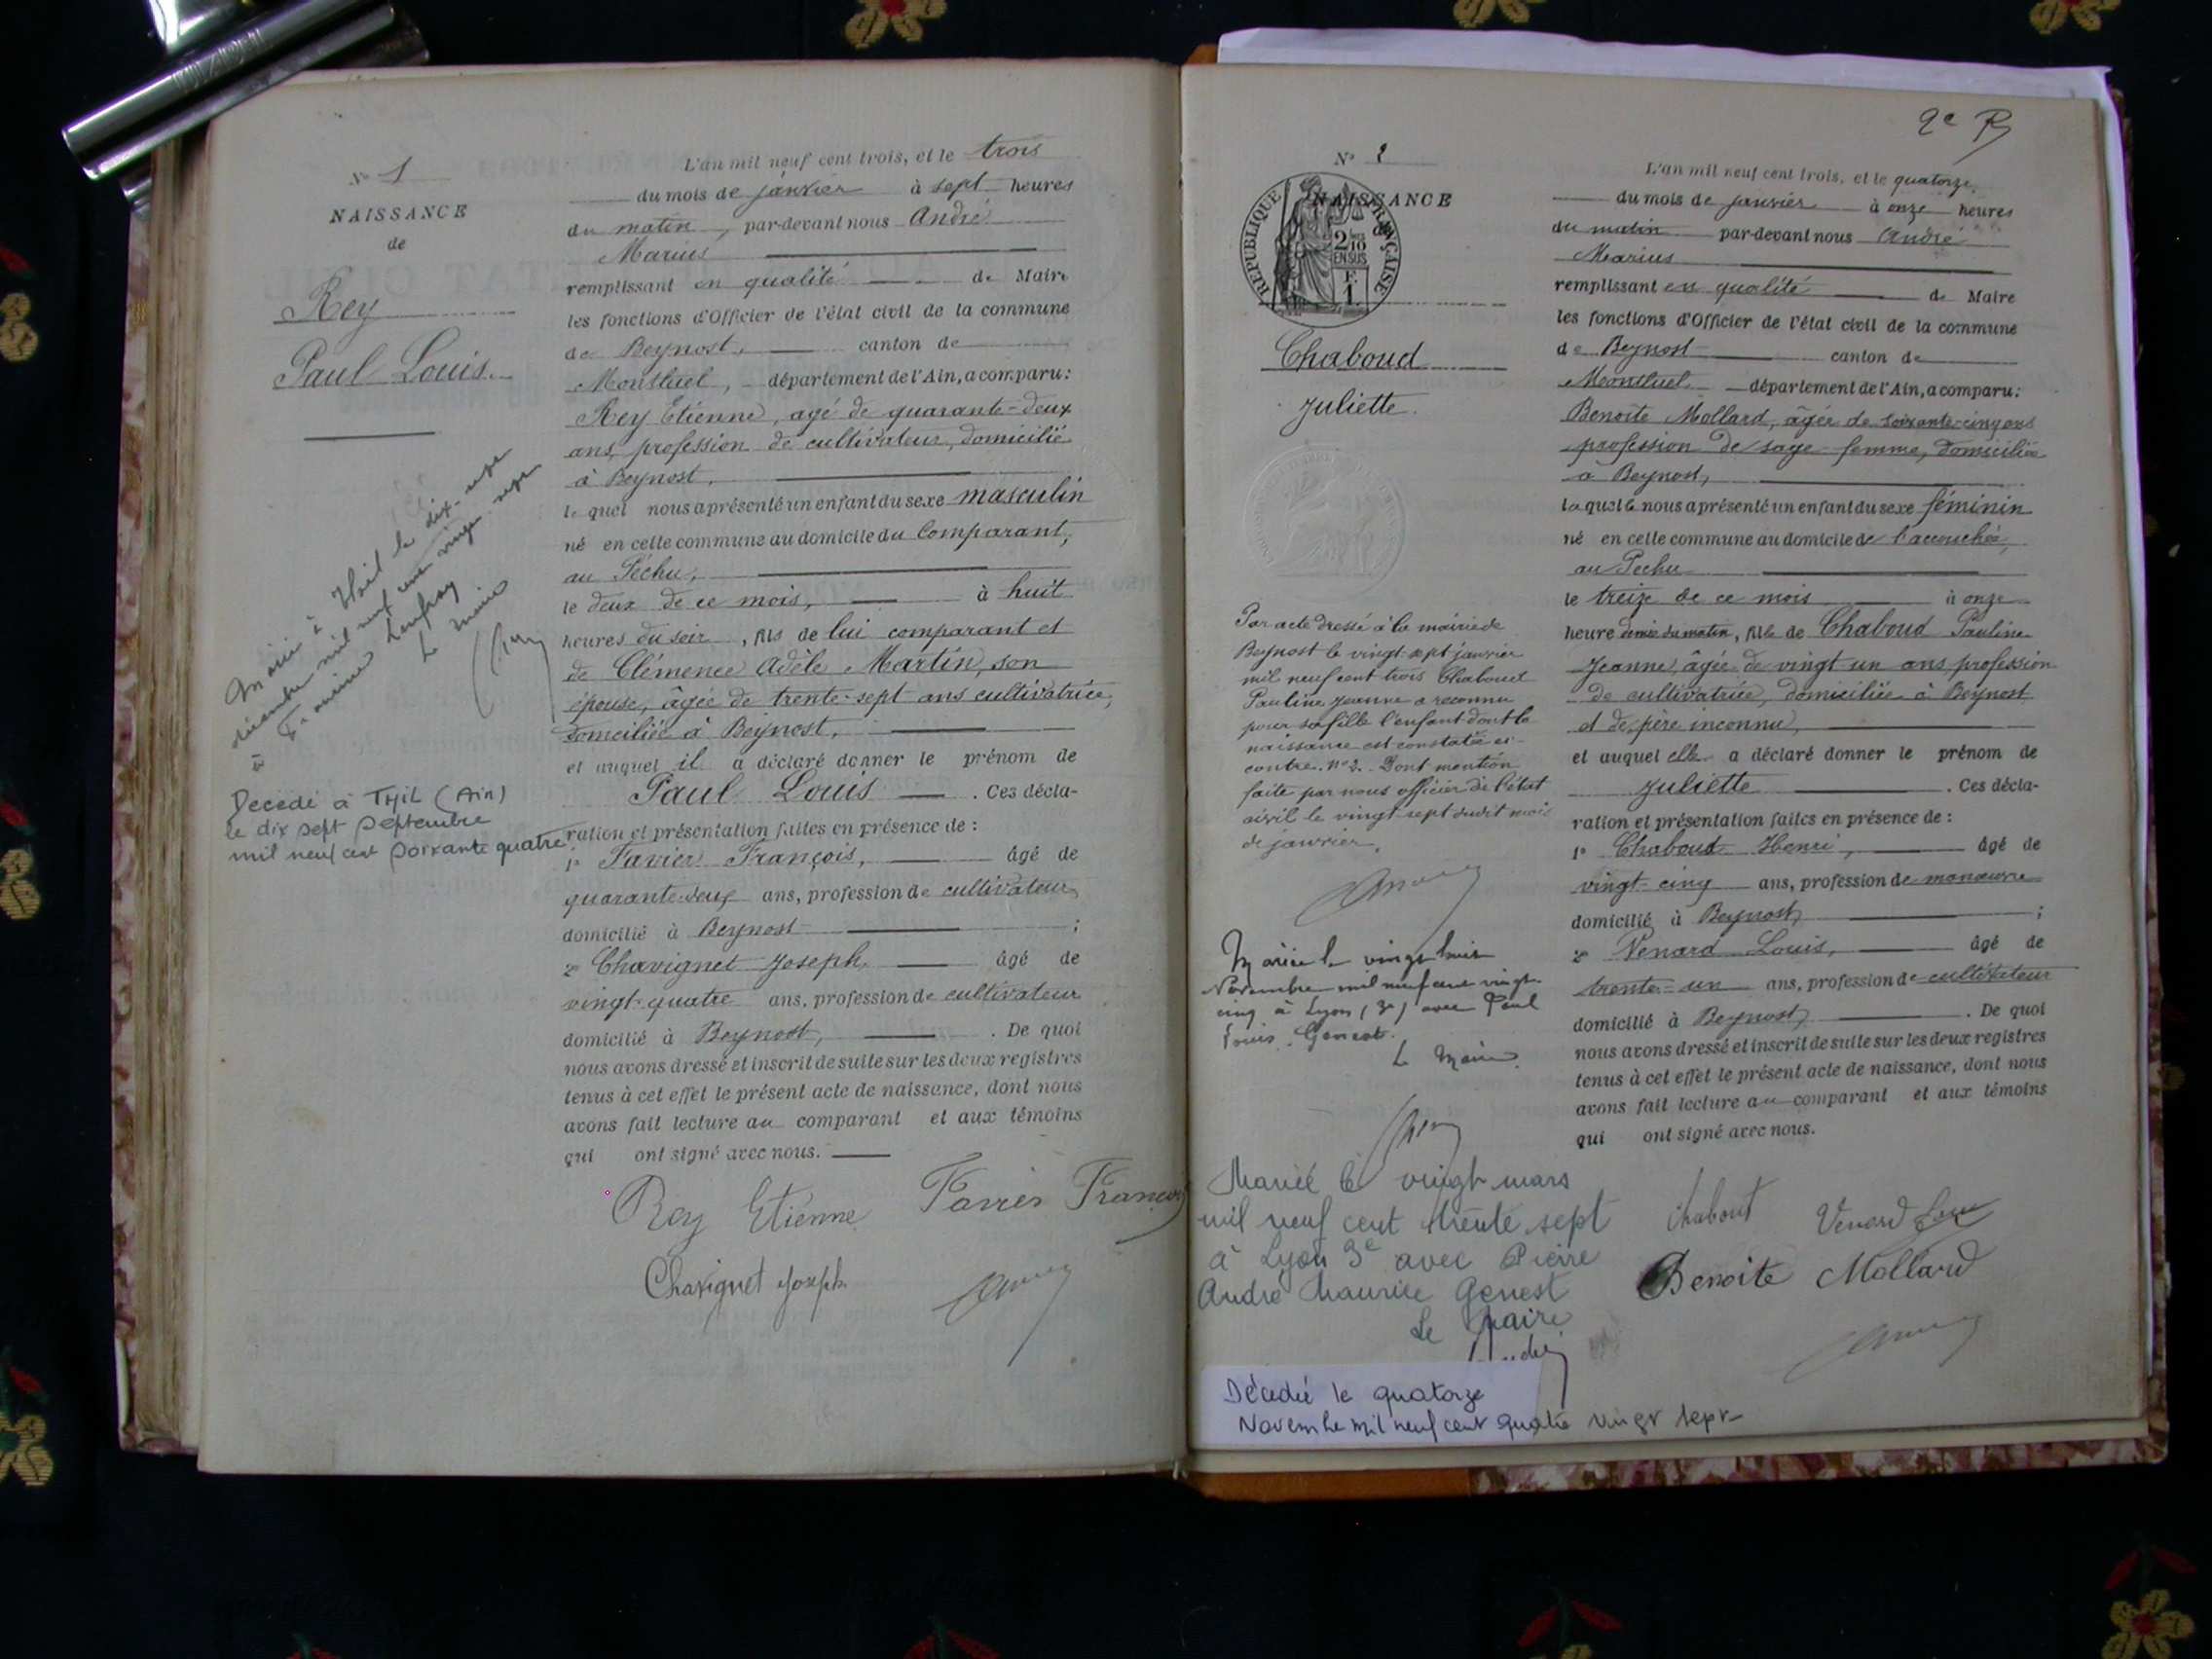 N° 1
NAISSANCE
de
Rey
Paul Louis.
Marié à Thil le dix-sept
décembre mil neuf cent vingt-sept
à
Le Maire
Décédé à THIL (Ain)
le dix sept septembre
mil neuf cent soixante quatre
L'an mil neuf cent trois, et le trois
du mois de janvier à sept heures
du matin, par-devant nous André
Marius
remplissant en qualité de Maire
les fonctions d'Officier de l'état civil de la commune
de Beynost, canton de
Montluel, département de l'Ain, a comparu:
Rey Etienne, agé de quarante-deux
ans, profession de cultivateur, domicilié
à Beynost,
lequel nous a présenté un enfant du sexe masculin
né en cette commune au domicile du Comparant,
au Péchu,
le deux de ce mois, à huit
heures du soir, fils de lui comparant et
de Clémence Adèle Martin, son
épouse, âgée de trente-sept ans cultivatrice,
domiciliée à Beynost,
et auquel il a déclaré donner le prénom de
Paul Louis. Ces décla-
ration et présentation faites en présence de :
1° Favier François, âgé de
quarante-deux ans, profession de cultivateur
domicilié à Beynost ;
2° Chavignet Joseph, âgé de
vingt-quatre ans, profession de cultivateur
domicilié à Beynost, . De quoi
nous avons dressé et inscrit de suite sur les deux registres
tenus à cet effet le présent acte de naissance, dont nous
avons fait lecture au comparant et aux témoins
qui ont signé avec nous.
Rey Etienne Favier François
Chavignet Joseph
2e
N° 2
NAISSANCE
de
REPUBLIQUE FRANÇAISE
2/10
EN SUS
F.
1.
Chaboud
Juliette.
Par acte dressé à la mairie de
Beynost le vingt-sept janvier
mil neuf cent trois Chaboud
Pauline Jeanne a reconnu
pour sa fille l'enfant dont la
naissance est constatée ci-
contre. n° 2. Dont mention
faite par nous officier de l'état
civil le vingt-sept dudit mois
de janvier.
Mariée le vingt huit
Novembre mil neuf cent vingt-
cinq à Lyon (3e) avec Paul
Louis Genest.
Le Maire
Mariée le vingt mars
mil neuf cent trente sept
à Lyon 3e avec Pierre
André Maurice Genest
Le Maire
Décédée le quatorze
Novembre mil neuf cent quatre vingt sept
L'an mil neuf cent trois, et le quatorze
du mois de janvier à onze heures
du matin par-devant nous André
Marius
remplissant en qualité de Maire
les fonctions d'Officier de l'état civil de la commune
de Beynost canton de
Montluel département de l'Ain, a comparu:
Benoite Mollard, âgée de soixante-cinq ans
profession de sage-femme, domiciliée
à Beynost,
laquelle nous a présenté un enfant du sexe féminin
né en cette commune au domicile de l'accouchée,
au Péchu
le treize de ce mois à onze
heure demie du matin, fille de Chaboud Pauline
Jeanne, âgée de vingt un ans, profession
de cultivatrice, domiciliée à Beynost
et de père inconnu,
et auquel elle a déclaré donner le prénom de
Juliette . Ces décla-
ration et présentation faites en présence de :
1° Chaboud Henri, âgé de
vingt-cinq ans, profession de manœuvre
domicilié à Beynost, ;
2° Venard Louis, âgé de
trente-un ans, profession de cultivateur
domicilié à Beynost, . De quoi
nous avons dressé et inscrit de suite sur les deux registres
tenus à cet effet le présent acte de naissance, dont nous
avons fait lecture au comparant et aux témoins
qui ont signé avec nous.
Chaboud Venard Louis
Benoite Mollard